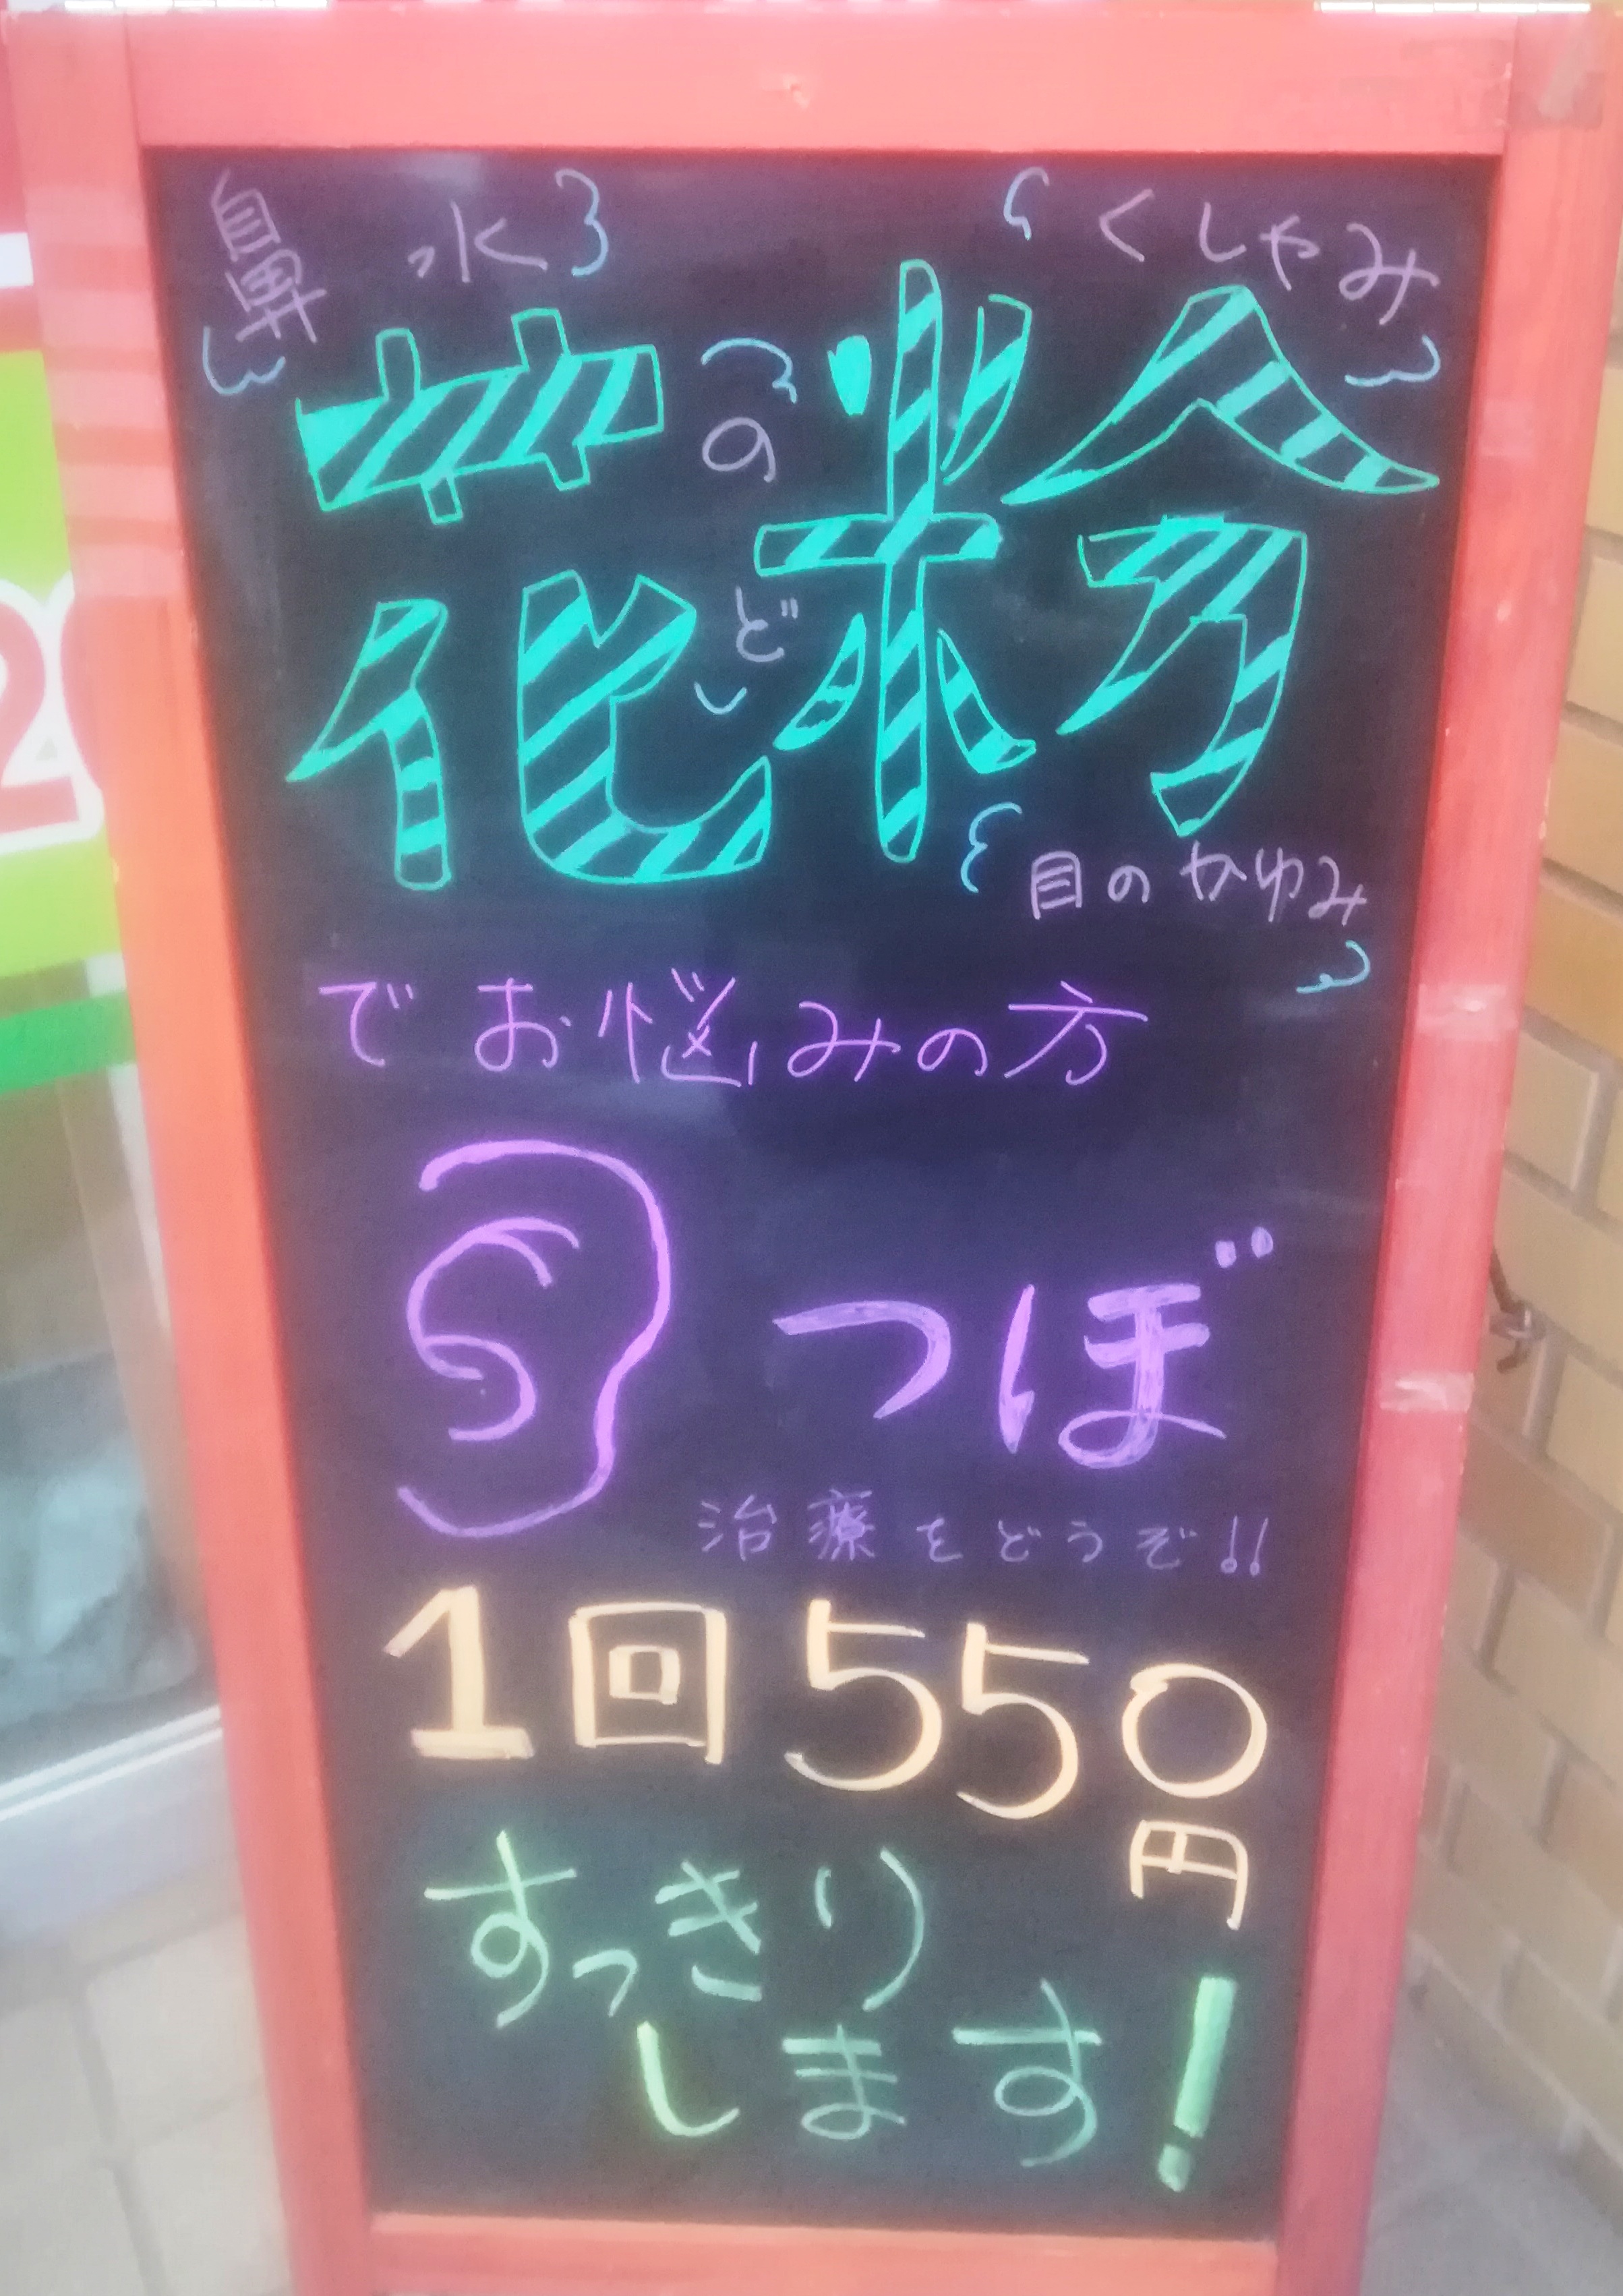 鼻水
くしゃみ
花粉
のど
目のかゆみ
でお悩みの方
つぼ
治療をどうぞ!!
1回550
円
すっきり
します!